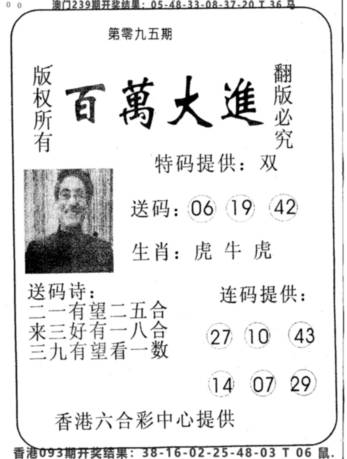 澳门239期开奖结果：05-48-33-08-37-20 T 36 马
第零九五期
版权所有
百萬大進
翻版必究
特码提供：双
送码：06 19 42
生肖：虎 牛 虎
送码诗：
二一有望二五合
来三好有一八合
三九有望看一数
连码提供：
27 10 43
14 07 29
香港六合彩中心提供
香港093期开奖结果：38-16-02-25-48-03 T 06 鼠.